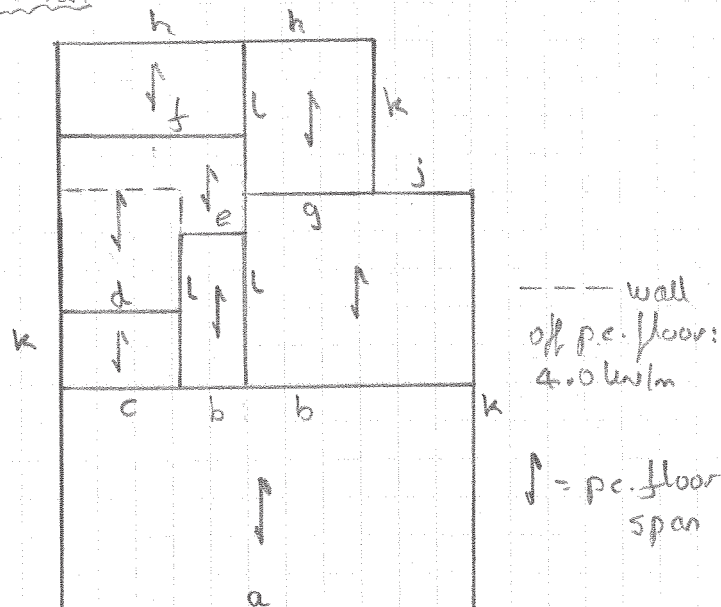 h h
f l k
j
e g
d l l
k
c b b k
a
---- wall
off p.c. floor:
4.0 kN/m
= p.c. floor
span